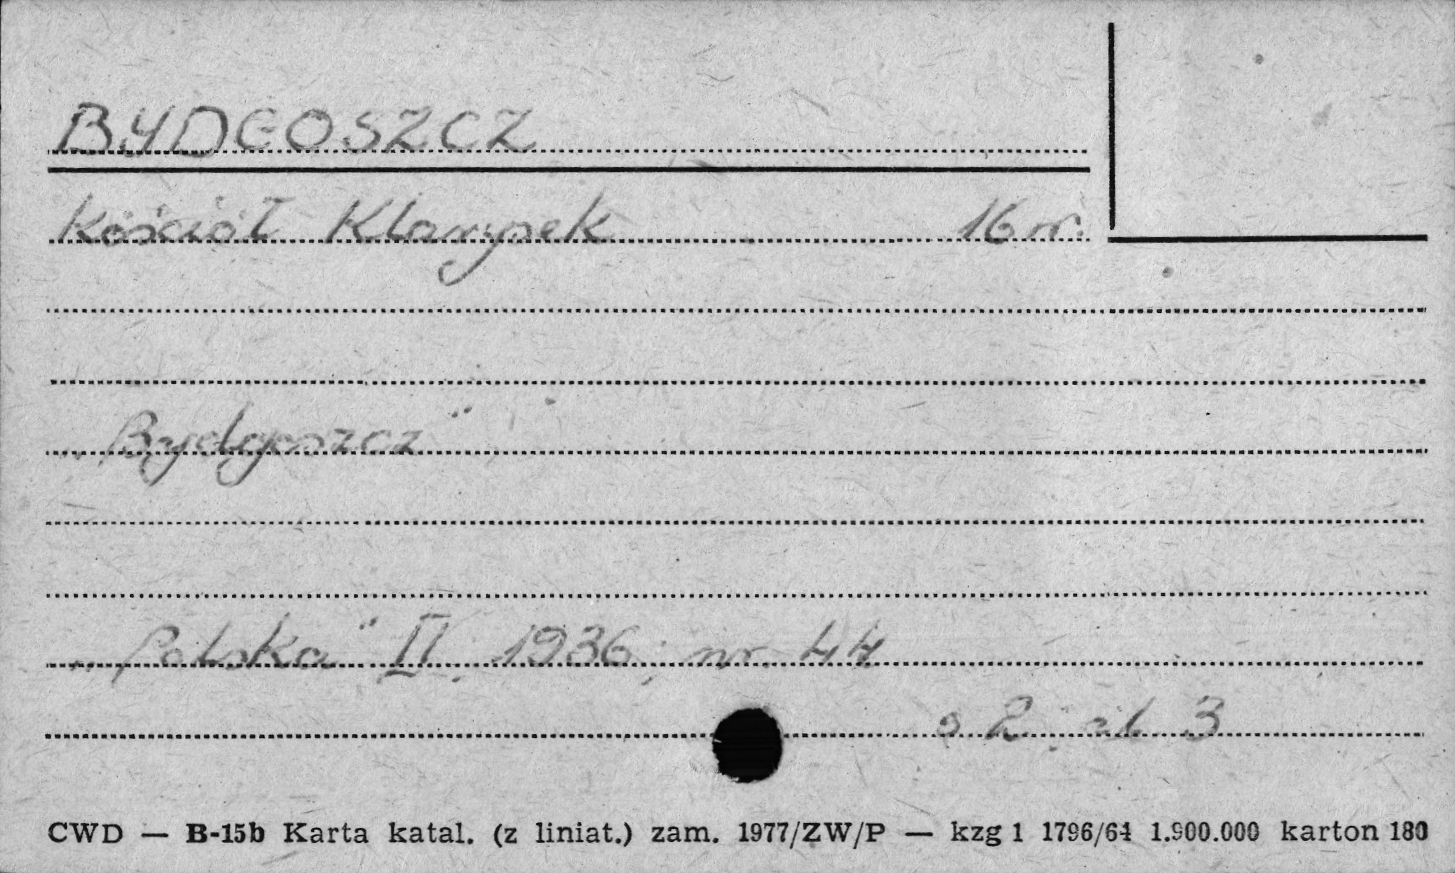 BYDGOSZCZ
Kościół Klarysek 16 w.
„Bydgoszcz"
„Polska" II, 1936, nr. 44
s. 2. il. 3
CWD — B-15b Karta katal. (z liniat.) zam. 1977/ZW/P — kzg 1 1796/64 1.900.000 karton 180